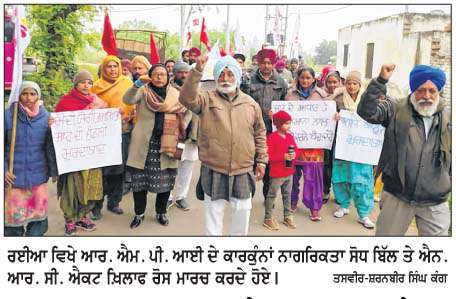 ਰਈਆ ਵਿਖੇ ਆਰ. ਐਮ. ਪੀ. ਆਈ ਦੇ ਕਾਰਕੁੰਨਾਂ ਨਾਗਰਿਕਤਾ ਸੋਧ ਬਿੱਲ ਤੇ ਐਨ.
ਆਰ. ਸੀ. ਐਕਟ ਖ਼ਿਲਾਫ ਰੋਸ ਮਾਰਚ ਕਰਦੇ ਹੋਏ।
ਤਸਵੀਰ-ਸ਼ਰਨਬੀਰ ਸਿੰਘ ਕੰਗ